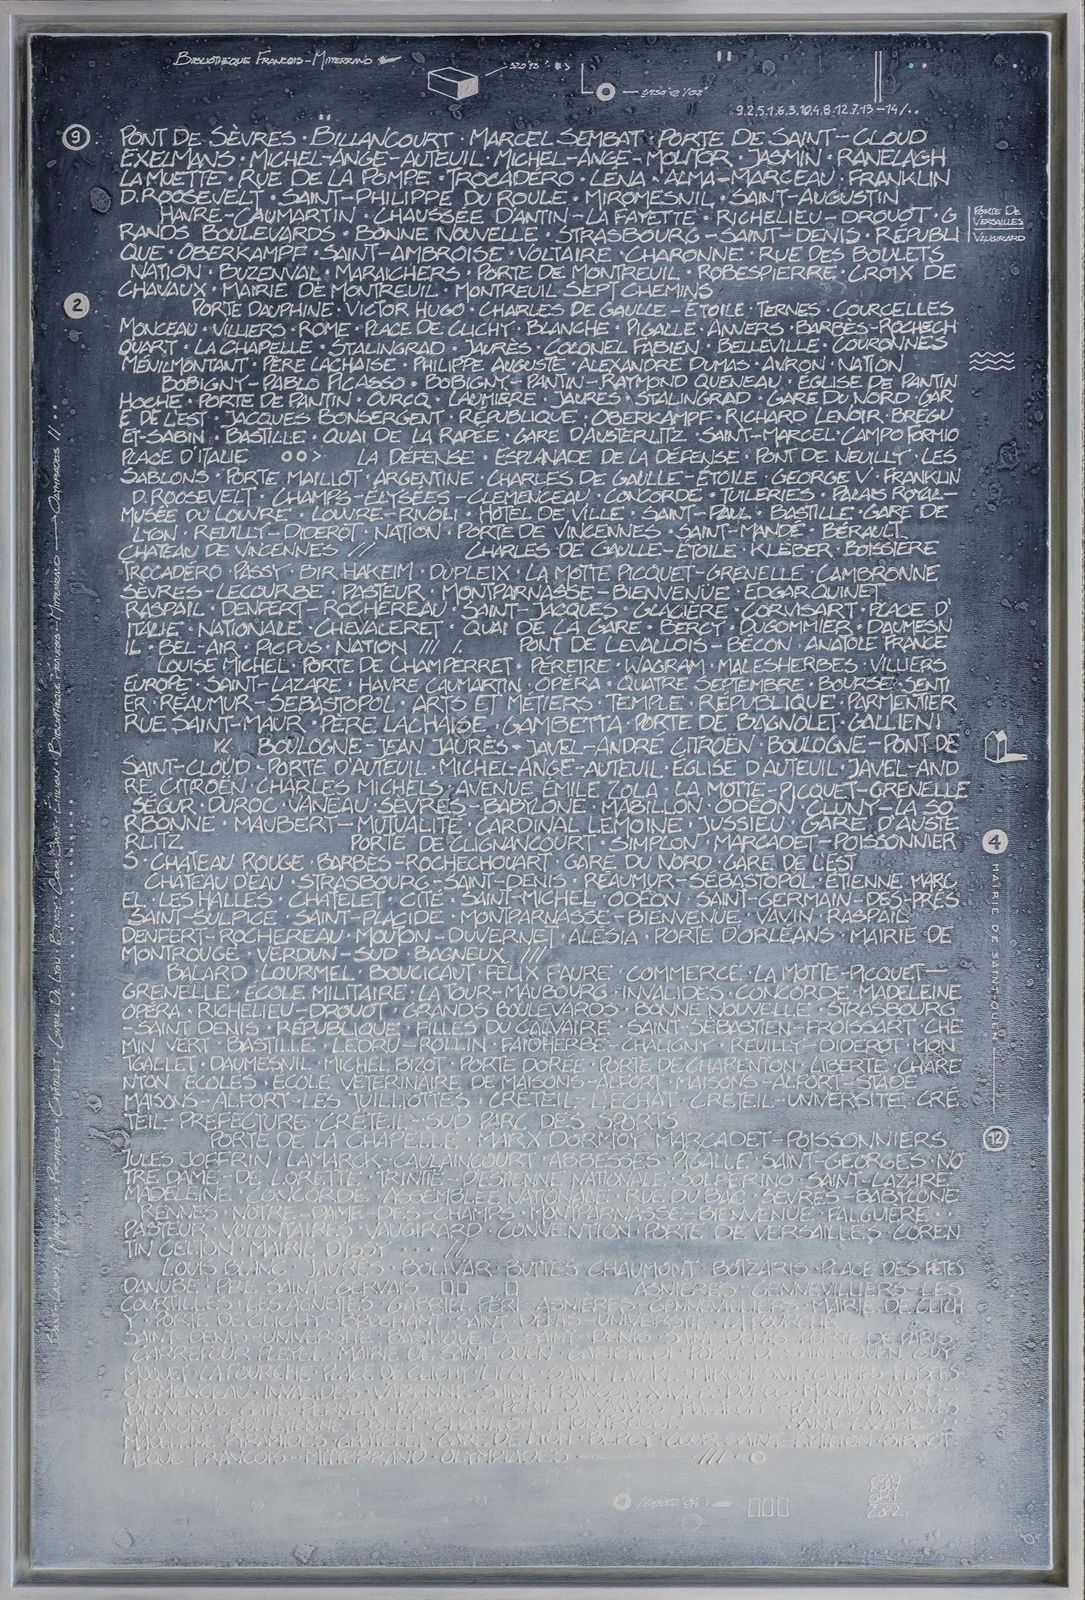 BIBLIOTHEQUE FRANCOIS-MITTERRAND
9.2.5.1.6.3.10.4.8.12.7.13-14/..
9
PONT DE SÈVRES · BILLANCOURT · MARCEL SEMBAT · PORTE DE SAINT-CLOUD
EXELMANS · MICHEL-ANGE-AUTEUIL · MICHEL-ANGE-MOLITOR · JASMIN · RANELAGH
LA MUETTE · RUE DE LA POMPE · TROCADÉRO · LÉNA · ALMA-MARCEAU · FRANKLIN
D. ROOSEVELT · SAINT-PHILIPPE DU ROULE · MIROMESNIL · SAINT-AUGUSTIN
HAVRE-CAUMARTIN · CHAUSSÉE D'ANTIN-LA FAYETTE · RICHELIEU-DROUOT · G
RANDS BOULEVARDS · BONNE NOUVELLE · STRASBOURG-SAINT-DENIS · RÉPUBLI
QUE · OBERKAMPF · SAINT-AMBROISE · VOLTAIRE · CHARONNE · RUE DES BOULETS
NATION · BUZENVAL · MARAICHERS · PORTE DE MONTREUIL · ROBESPIERRE · CROIX DE
CHAVAUX · MAIRIE DE MONTREUIL · MONTREUIL SEPT CHEMINS
PORTE DE
VERSAILLES
VAUGIRARD
2
PORTE DAUPHINE · VICTOR HUGO · CHARLES DE GAULLE-ÉTOILE · TERNES · COURCELLES
MONCEAU · VILLIERS · ROME · PLACE DE CLICHY · BLANCHE · PIGALLE · ANVERS · BARBÈS-ROCHECH
OUART · LA CHAPELLE · STALINGRAD · JAURÈS · COLONEL FABIEN · BELLEVILLE · COURONNES
MÉNILMONTANT · PÈRE LACHAISE · PHILIPPE AUGUSTE · ALEXANDRE DUMAS · AVRON · NATION
BOBIGNY-PABLO PICASSO · BOBIGNY-PANTIN-RAYMOND QUENEAU · ÉGLISE DE PANTIN
HOCHE · PORTE DE PANTIN · OURCQ · LAUMIÈRE · JAURÈS · STALINGRAD · GARE DU NORD · GAR
E DE L'EST · JACQUES BONSERGENT · RÉPUBLIQUE · OBERKAMPF · RICHARD LENOIR · BRÉGU
ET-SABIN · BASTILLE · QUAI DE LA RAPÉE · GARE D'AUSTERLITZ · SAINT-MARCEL · CAMPO FORMIO
PLACE D'ITALIE oo> LA DÉFENSE · ESPLANADE DE LA DÉFENSE · PONT DE NEUILLY · LES
SABLONS · PORTE MAILLOT · ARGENTINE · CHARLES DE GAULLE-ÉTOILE · GEORGE V · FRANKLIN
D. ROOSEVELT · CHAMPS-ÉLYSÉES-CLEMENCEAU · CONCORDE · TUILERIES · PALAIS ROYAL-
MUSÉE DU LOUVRE · LOUVRE-RIVOLI · HÔTEL DE VILLE · SAINT-PAUL · BASTILLE · GARE DE
LYON · REUILLY-DIDEROT · NATION · PORTE DE VINCENNES · SAINT-MANDÉ · BÉRAULT
CHATEAU DE VINCENNES /// CHARLES DE GAULLE-ÉTOILE · KLÉBER · BOISSIÈRE
TROCADÉRO · PASSY · BIR HAKEIM · DUPLEIX · LA MOTTE PICQUET-GRENELLE · CAMBRONNE
SÈVRES-LECOURBE · PASTEUR · MONTPARNASSE-BIENVENUE · EDGAR QUINET
RASPAIL · DENFERT-ROCHEREAU · SAINT-JACQUES · GLACIÈRE · CORVISART · PLACE D'
ITALIE · NATIONALE · CHEVALERET · QUAI DE LA GARE · BERCY · DUGOMMIER · DAUMESN
IL · BEL-AIR · PICPUS · NATION /// /. PONT DE LEVALLOIS-BÉCON · ANATOLE FRANCE
LOUISE MICHEL · PORTE DE CHAMPERRET · PÉREIRE · WAGRAM · MALESHERBES · VILLIERS
EUROPE · SAINT-LAZARE · HAVRE CAUMARTIN · OPÉRA · QUATRE SEPTEMBRE · BOURSE · SENTI
ER · RÉAUMUR-SÉBASTOPOL · ARTS ET MÉTIERS · TEMPLE · RÉPUBLIQUE · PARMENTIER
RUE SAINT-MAUR · PÈRE LACHAISE · GAMBETTA · PORTE DE BAGNOLET · GALLIENI
BOULOGNE-JEAN JAURÈS · JAVEL-ANDRÉ CITROËN · BOULOGNE-PONT DE
SAINT-CLOUD · PORTE D'AUTEUIL · MICHEL-ANGE-AUTEUIL · ÉGLISE D'AUTEUIL · JAVEL-AND
RÉ CITROËN · CHARLES MICHELS · AVENUE ÉMILE ZOLA · LA MOTTE-PICQUET-GRENELLE
SÉGUR · DUROC · VANEAU · SÈVRES-BABYLONE · MABILLON · ODÉON · CLUNY-LA SO
RBONNE · MAUBERT-MUTUALITÉ · CARDINAL LEMOINE · JUSSIEU · GARE D'AUSTE
RLITZ PORTE DE CLIGNANCOURT · SIMPLON · MARCADET-POISSONNIER
S · CHÂTEAU ROUGE · BARBÈS-ROCHECHOUART · GARE DU NORD · GARE DE L'EST
CHÂTEAU D'EAU · STRASBOURG-SAINT-DENIS · RÉAUMUR-SÉBASTOPOL · ÉTIENNE MARC
EL · LES HALLES · CHATELET · CITÉ · SAINT-MICHEL · ODÉON · SAINT-GERMAIN-DES-PRÉS
SAINT-SULPICE · SAINT-PLACIDE · MONTPARNASSE-BIENVENUE · VAVIN · RASPAIL
DENFERT-ROCHEREAU · MOUTON-DUVERNET · ALÉSIA · PORTE D'ORLÉANS · MAIRIE DE
MONTROUGE · VERDUN-SUD · BAGNEUX ///
4
MAIRIE DE SAINT OUEN
BALARD · LOURMEL · BOUCICAUT · FÉLIX FAURE · COMMERCE · LA MOTTE-PICQUET-
GRENELLE · ÉCOLE MILITAIRE · LA TOUR-MAUBOURG · INVALIDES · CONCORDE · MADELEINE
OPÉRA · RICHELIEU-DROUOT · GRANDS BOULEVARDS · BONNE NOUVELLE · STRASBOURG
-SAINT DENIS · RÉPUBLIQUE · FILLES DU CALVAIRE · SAINT-SÉBASTIEN-FROISSART · CHE
MIN VERT · BASTILLE · LEDRU-ROLLIN · FAIDHERBE-CHALIGNY · REUILLY-DIDEROT · MON
TGALLET · DAUMESNIL · MICHEL BIZOT · PORTE DORÉE · PORTE DE CHARENTON · LIBERTÉ · CHARE
NTON ÉCOLES · ÉCOLE VÉTÉRINAIRE DE MAISONS-ALFORT · MAISONS-ALFORT-STADE
MAISONS-ALFORT-LES JUILLIOTTES · CRÉTEIL-L'ÉCHAT · CRÉTEIL-UNIVERSITÉ · CRÉ
TEIL-PRÉFECTURE · CRÉTEIL-SUD PARC DES SPORTS
12
PORTE DE LA CHAPELLE · MARX DORMOY · MARCADET-POISSONNIERS
JULES JOFFRIN · LAMARCK-CAULAINCOURT · ABBESSES · PIGALLE · SAINT-GEORGES · NO
TRE DAME-DE LORETTE · TRINITÉ D'ESTIENNE NATIONALE · SOLFERINO · SAINT-LAZARE
MADELEINE · CONCORDE · ASSEMBLÉE NATIONALE · RUE DU BAC · SÈVRES-BABYLONE
RENNES · NOTRE-DAME DES CHAMPS · MONTPARNASSE-BIENVENUE · FALGUIÈRE
PASTEUR · VOLONTAIRES · VAUGIRARD · CONVENTION · PORTE DE VERSAILLES · COREN
TIN CELTON · MAIRIE D'ISSY · · · · //
LOUIS BLANC · JAURÈS · BOLIVAR · BUTTES CHAUMONT · BOTZARIS · PLACE DES FÊTES
DANUBE · PRÉ SAINT-GERVAIS ASNIÈRES-GENNEVILLIERS-LES
COURTILLES · LES AGNETTES · GABRIEL PÉRI · ASNIÈRES · GENNEVILLIERS · MAIRIE DE CLICH
Y · PORTE DE CLICHY · BROCHANT · SAINT DENIS-UNIVERSITÉ · LA FOURCHE
SAINT DENIS-UNIVERSITÉ · BASILIQUE D. SAINT DENIS · SAINT DENIS PORTE DE PARIS
CARREFOUR PLEYEL · MAIRIE DE SAINT OUEN · GARIBALDI · PORTE DE SAINT-OUEN · GUY
MOQUET · LA FOURCHE · PLACE DE CLICHY · LIÈGE · SAINT LAZARE · MIROMESNIL · CHAMPS ÉLYSÉES
CLEMENCEAU · INVALIDES · VARENNE · SAINT-FRANÇOIS XAVIER · DUROC · MONTPARNASSE
BIENVENUE · GAITÉ · PERNETY · PLAISANCE · PORTE DE VANVES · MALAKOFF-PLATEAU DE VANVES
MALAKOFF-RUE ÉTIENNE DOLET · CHATILLON-MONTROUGE SAINT LAZARE
MADELEINE · PYRAMIDES · CHATELET · GARE DE LYON · BERCY · COUR SAINT-ÉMILION · BIBLIOT
HÈQUE FRANCOIS-MITTERRAND · OLYMPIADES
2022